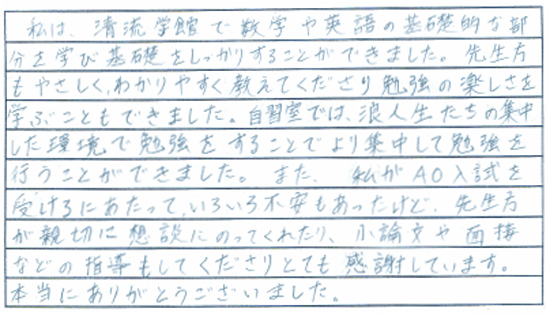 私は、清流学館で数学や英語の基礎的な部
分を学び基礎をしっかりすることができました。先生方
もやさしく、わかりやすく教えてくださり勉強の楽しさを
学ぶこともできました。自習室では、浪人生たちの集中
した環境で勉強をすることでより集中して勉強を
行うことができました。また、私がAO入試を
受けるにあたって、いろいろ不安もあったけど、先生方
が親切に想談にのってくれたり、小論文や面接
などの指導もしてくださりとても感謝しています。
本当にありがとうございました。